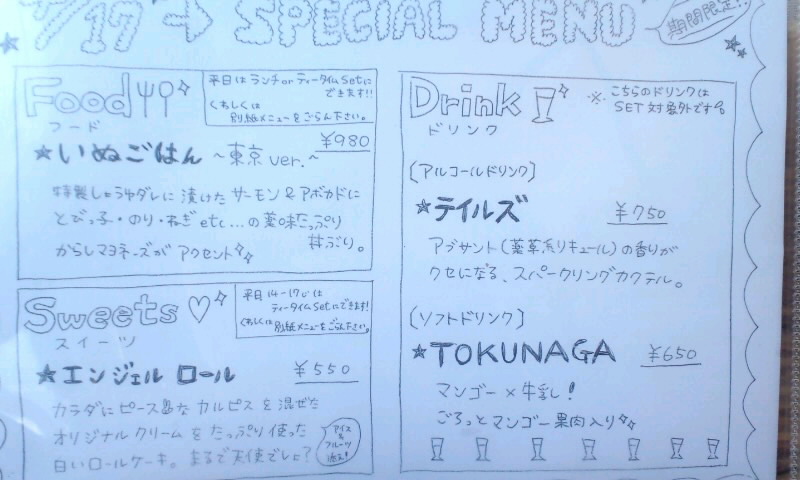 /17→ SPECIAL MENU
期間限定!!
Food
フード
平日はランチorティータイムsetに
できます!!
くわしくは
別紙メニューをごらん下さい。
★いぬごはん ~東京ver.~
¥980
特製しょうゆダレに漬けたサーモン&アボカドに
とびっ子・のり・ねぎetc...の薬味たっぷり
丼ぶり。
からしマヨネーズがアクセント
Sweets♡
スイーツ
平日14-17じは
ティータイムsetにできます!
くわしくは別紙メニューをごらん下さい。
★エンジェルロール
¥550
カラダにピースなカルピスを混ぜた
オリジナルクリームをたっぷり使った
白いロールケーキ。まるで天使でしょ?
アイス&
フルーツ
添え!
Drink
ドリンク
※こちらのドリンクは
SET対象外です。
〔アルコールドリンク〕
★テイルズ
¥750
アブサント(薬草系リキュール)の香りが
クセになる、スパークリングカクテル。
〔ソフトドリンク〕
★TOKUNAGA
¥650
マンゴー×牛乳!
ごろっとマンゴー果肉入り